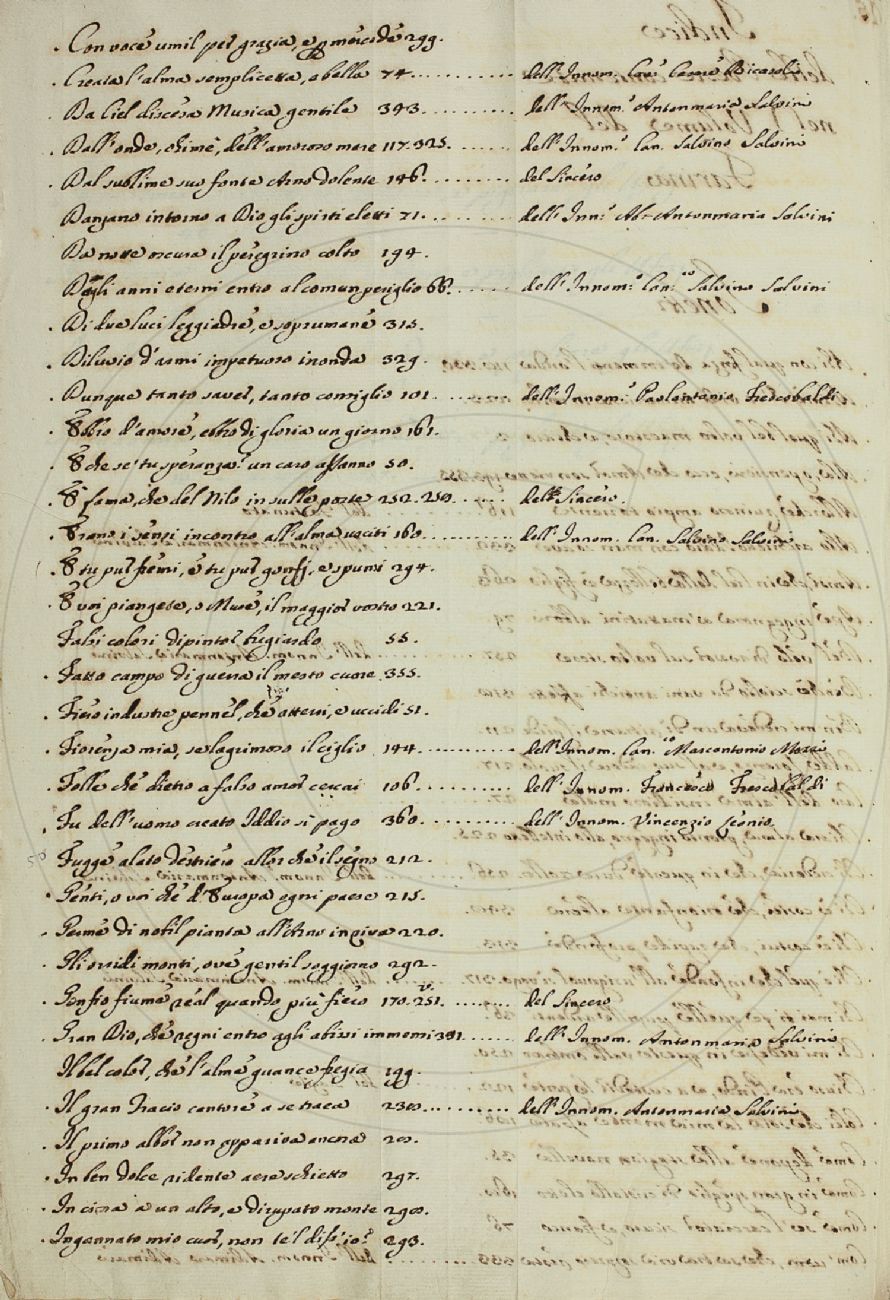 . Con voce umil per grazia, e p mercide 299.
. Creata l'alma semplicetta, e bella 74. . . . . . . . . . dell' Innom. Cav.
. Da Ciel discesa Musica gentile 343. . . . . . . . . . dell' Innom.º Antonmaria Salvini
. Dall'onde, ohimè, dell'amoroso mare 117. 325. . . . . . . dell' Innom.º Can. Salvino Salvini
. Dal sublime suo fonte Arno dolente 146. . . . . . . . . del Sincero
. Danzano intorno a Dio gli spirti eletti 71. . . . . . . . . dell' Inn.º Ab. Antonmaria Salvini
. Da notte oscura il peregrino colto 194.
. Degli anni eterni entro al comun periglio 66. . . . . . dell' Innom.º Can.co Salvino Salvini
. Di due luci leggiadre, e soprumane 315.
. Diluvio d'armi impetuoso inonda 329.
. Dunque tanto saver, tanto consiglio 101. . . . . . . . dell' Innom.º Paolantonio Frescobaldi
. Ebbro d'amore, ebbro di gloria un giorno 161.
. E che se' tu speranza? un caro affanno 50.
. E' fama, che del Nilo in sulle porte 252. 250. . . . . . dell Sincero.
. Erano i sensi incontro all'alma usciti 160. . . . . . . . dell' Innom. Can. Salvino Salvini
. E tu pur fremi, e tu pur gonfj, e spumi 294.
. E voi piangete, o Muse, il maggior vostro 221.
. Falsi colori di pintor bugiardo 55.
. Fatto campo di guerra il mesto cuore 355.
. Fiero industre pennel, che atterri, e uccidi 51.
. Fiorenza mia, se lagrimoso il ciglio 144. . . . . . . . . dell' Innom. Can.co Marcantonio Mozzi
. Folle che dietro a falso amor cercai 106. . . . . . . . . dell' Innom. Francesco Frescobaldi
. Fu dell'uomo creato Iddio sì pago 360. . . . . . . . . dell' Innom. Vincenzio
50 Fugge alato destriero allor che il segno 212.
. Genti, o voi che d'Europa ogni paese 215.
. Germe di nobil pianta all'Arno in riva 220.
. Gli ovidi monti, ove gentil soggiorno 292.
. Gonfio fiume real quando più fiero 170. 251. . . . . . . del Sincero
. Gran Dio, che regni entro agli abissi immensi 381. . . . . . dell' Innom. Antonmaria Salvini
Il bel color, che l'alme guance fregia 199.
. Il gran Tracio cantore a se traea 230. . . . . . . . . . dell' Innom. Antonmaria Salvini
. Il primo albor non appariva ancora 20.
. In ben dolce ridente aere schietto 297.
. In cima a un alto, e dirupato monte 290.
. Ingannato mio cuor, non te'l diss'io? 293.